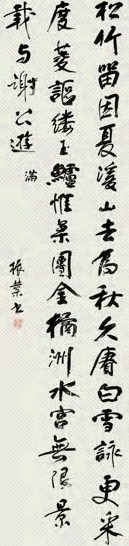 松竹留因夏溪山去為秋久賡白雪詠更采
度菱謳縷玉鱸堆案團金橘洲水宮無限景
載与謝公遊 滿
振業书